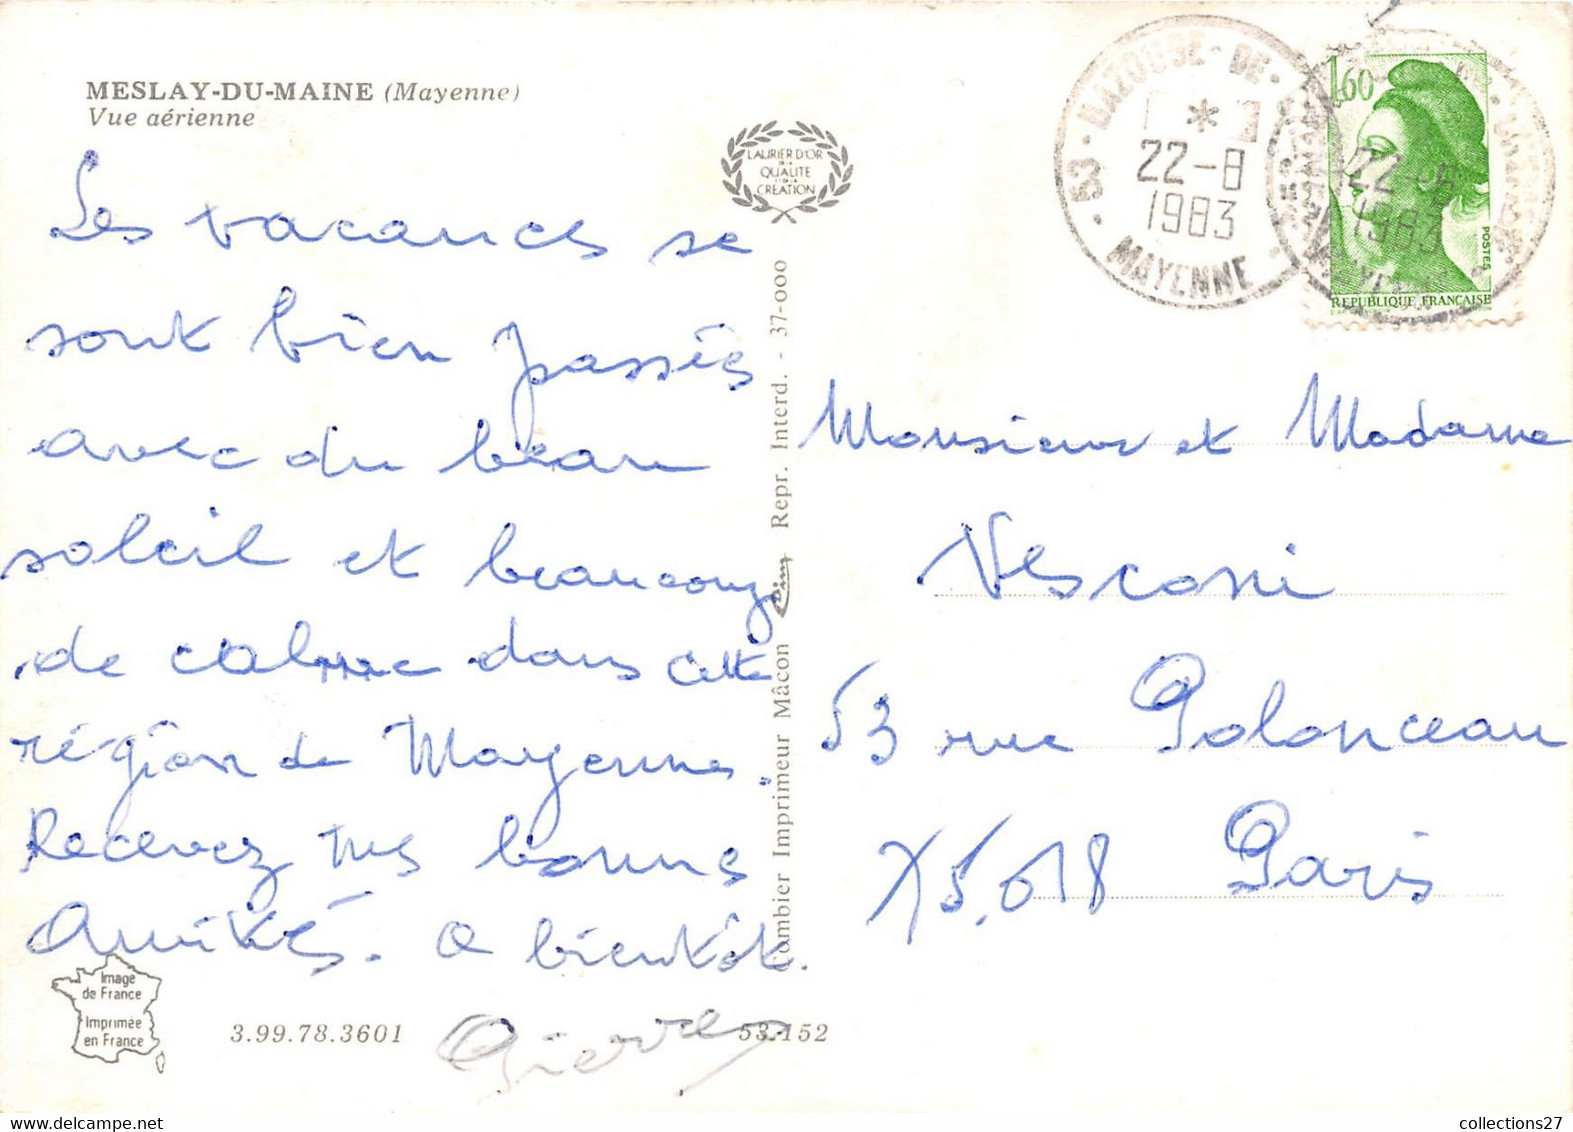 MESLAY-DU-MAINE (Mayenne)
Vue aérienne
LAURIER D'OR
DE LA
QUALITÉ
ET DE LA
CRÉATION
53 - BAZOUGE - DE -
22-8
1983
MAYENNE
1,60
22-8
1983
POSTES
REPUBLIQUE FRANÇAISE
Les vacances se
sont bien passés
avec du beau
soleil et beaucoup
de calme dans cette
région de Mayenne.
Recevez mes bonnes
Amitiés. A bientôt.
Pierre
Monsieur et Madame
Vesconi
53 rue Polonceau
75.018 Paris
Combier Imprimeur Mâcon Cim Repr. Interd. - 37-000
Image
de France
Imprimée
en France
3.99.78.3601
53.152
collections27